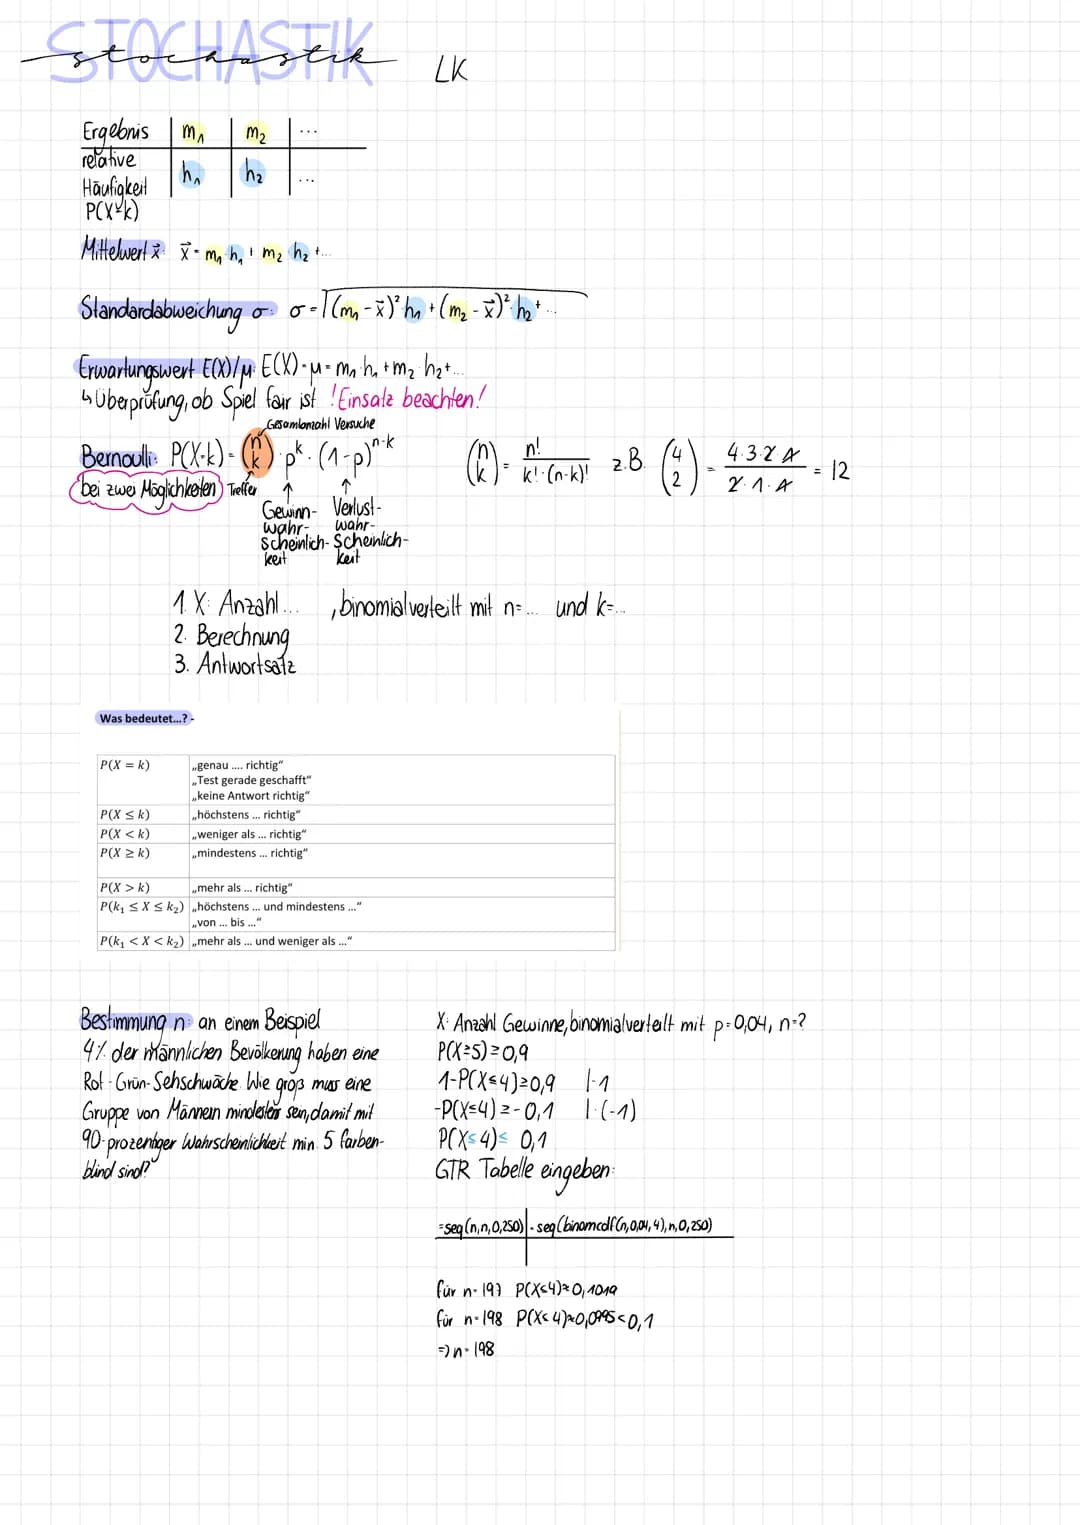 STOCHASTIK
stochastik LK
Ergebnis | m₁ | m₂ | ...
relative Häufigkeit P(X=k) | h₁ | h₂ | ...
Mittelwert x̄: x̄ = m₁·h₁ + m₂·h₂ + ...
Standardabweichung σ: σ = √((m₁-x̄)²·h₁ + (m₂-x̄)²·h₂ + ...
Erwartungswert E(X)/μ: E(X)=μ= m₁·h₁ + m₂·h₂+...
↳ Überprüfung, ob Spiel fair ist !Einsatz beachten!
Gesamtanzahl Versuche
Bernoulli: P(X=k) = (n k) · p^k · (1-p)^(n-k)
(n k) = n! / k!·(n-k)! z.B. (4 2) = 4·3·2·1 / 2·1·1 = 12
bei zwei Möglichkeiten
Treffer
Gewinn-wahr-scheinlich-keit
Verlust-wahr-Scheinlich-keit
1. X: Anzahl... , binomialverteilt mit n=... und k=...
2. Berechnung
3. Antwortsatz
Was bedeutet...? -
P(X = k) „genau .... richtig“
„Test gerade geschafft“
„keine Antwort richtig“
P(X ≤ k) „höchstens ... richtig“
P(X < k) „weniger als ... richtig“
P(X ≥ k) „mindestens ... richtig“
P(X > k) „mehr als ... richtig“
P(k₁ ≤ X ≤ k₂) „höchstens ... und mindestens ...“
„von ... bis ...“
P(k₁ < X < k₂) „mehr als ... und weniger als ...“
Bestimmung n: an einem Beispiel
4% der männlichen Bevölkerung haben eine
Rot-Grün-Sehschwäche. Wie groß muss eine
Gruppe von Männern mindestens sein, damit mit
90-prozentiger Wahrscheinlichkeit min. 5 farben-
blind sind?
X: Anzahl Gewinne, binomialverteilt mit p=0,04, n=?
P(X≥5)≥0,9
1-P(X≤4)≥0,9 |-1
-P(X≤4)≥-0,1 |·(-1)
P(X≤4)≤ 0,1
GTR Tabelle eingeben:
=seq(n,n,0,250) | =seq(binomcdf(n,0.04,4),n,0,250)
für n=197 P(X≤4)≈0,1019
für n=198 P(X≤4)≈0,0995<0,1
=> n=198